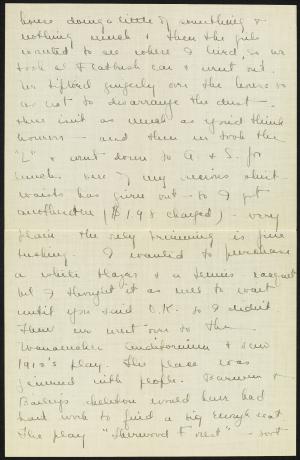 house doing a little of something &
nothing much & then the girls
wanted to see where I lived, so we
took a Flatbush car & went out.
We tiptoed gingerly over the house so
as not to disarrange the dust -
there isn't as much as you'd think
however - and then we took the
"L" & went down to A & S. for
lunch. One of my various shirt-
waists has given out - so I got
another ($1.98 charged) - very
plain the only trimming is fine
tucking. I wanted to purchase
a white blazer & a tennis racquet
but I thought it as well to wait
until you said O.K. so I didn't
Then we went over to the
Wanamaker Auditorium & saw
1910's play. The place was
jammed with people. Barnum &
Bailey's skeleton would have had
hard work to find a big enough seat
The play "Sherwood Forest" - sort